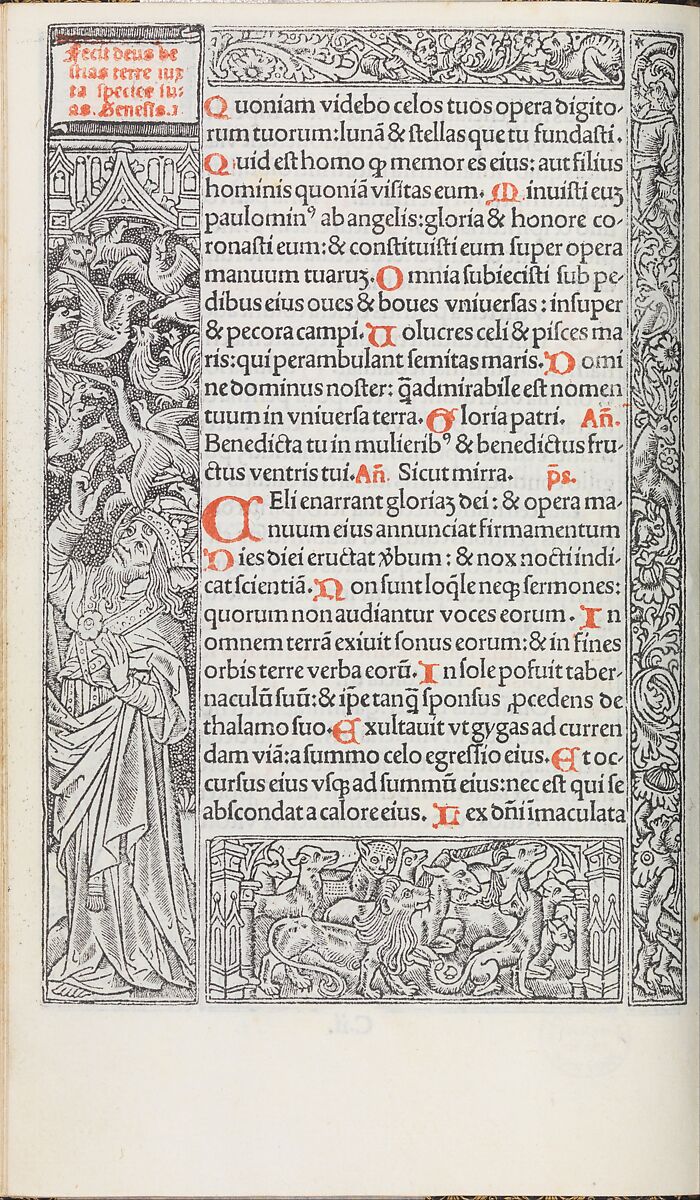 Fecit deus be
stias terre iux
ta species su⸗
as. Genesis.1
Quoniam videbo celos tuos opera digito⸗
rum tuorum:lunā & stellas que tu fundasti.
Quid est homo ꝙ memor es eius: aut filius
hominis quoniā visitas eum. Minuisti euꝫ
paulominꝰ ab angelis:gloria & honore co⸗
ronasti eum:& constituisti eum super opera
manuum tuaruꝫ. Omnia subiecisti sub pe⸗
dibus eius oues & boues vniuersas : insuper
& pecora campi. Uolucres celi & pisces ma
ris:qui perambulant semitas maris. Domi
ne dominus noster: q̄ admirabile est nomen
tuum in vniuersa terra. Gloria patri. Añ.
Benedicta tu in mulieribꝰ & benedictus fru⸗
ctus ventris tui. Añ. Sicut mirra. ps.
CEli enarrant gloriaꝫ dei : & opera ma⸗
nuum eius annunciat firmamentum
Dies diei eructat v̄bum : & nox nocti indi⸗
cat scientiā. Non sunt loq̄le neqꝫ sermones:
quorum non audiantur voces eorum. In
omnem terrā exiuit sonus eorum:& in fines
orbis terre verba eorū. In sole posuit taber⸗
naculū suū:& ip̄e tanq̄ sponsus ꝓcedens de
thalamo suo. Exultauit vt gygas ad curren
dam viā:a summo celo egressio eius. Et oc⸗
cursus eius vsqꝫ ad summū eius:nec est qui se
abscondat a calore eius. Lex dñi īmaculata